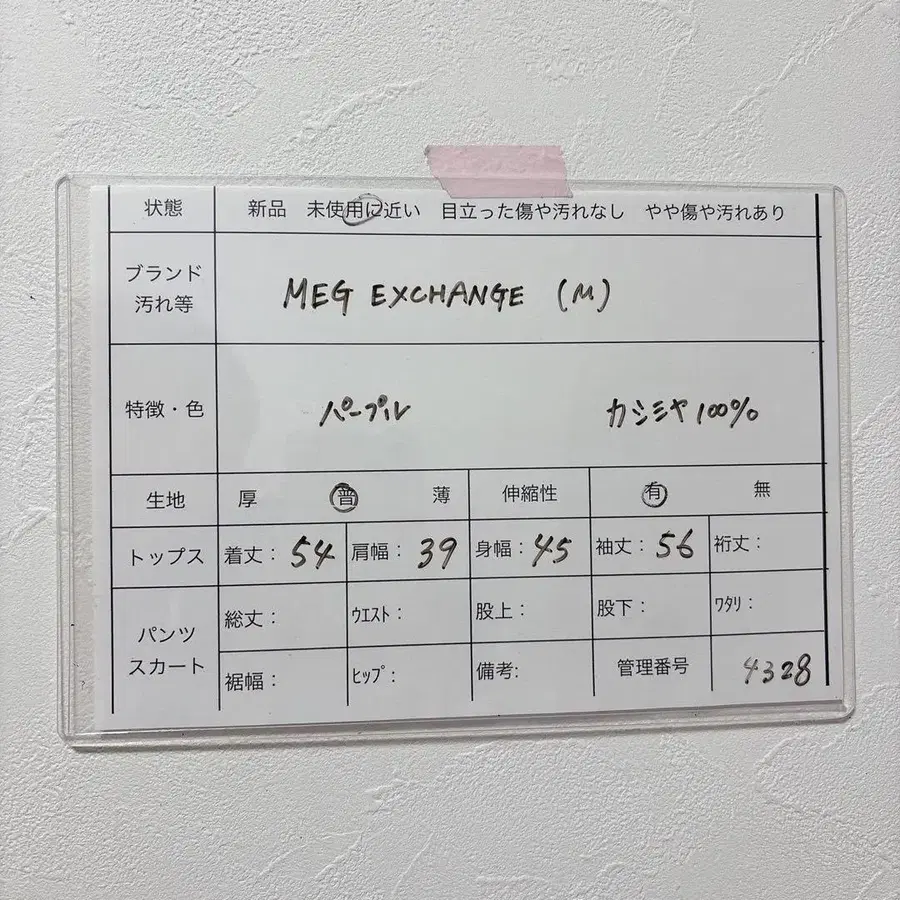 状態 新品 未使用に近い 目立った傷や汚れなし やや傷や汚れあり
ブランド
汚れ等
MEG EXCHANGE (M)
特徴・色 パープル カシミヤ100%
生地 厚 普 薄 伸縮性 有 無
トップス 着丈: 54 肩幅: 39 身幅: 45 袖丈: 56 裄丈:
パンツ
スカート
総丈: ウエスト: 股上: 股下: ワタリ:
裾幅: ヒップ: 備考: 管理番号 4328